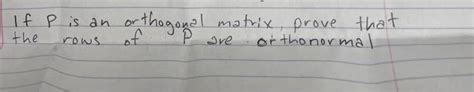 If P is an orthogonal matrix, prove that
the rows of P are orthonormal